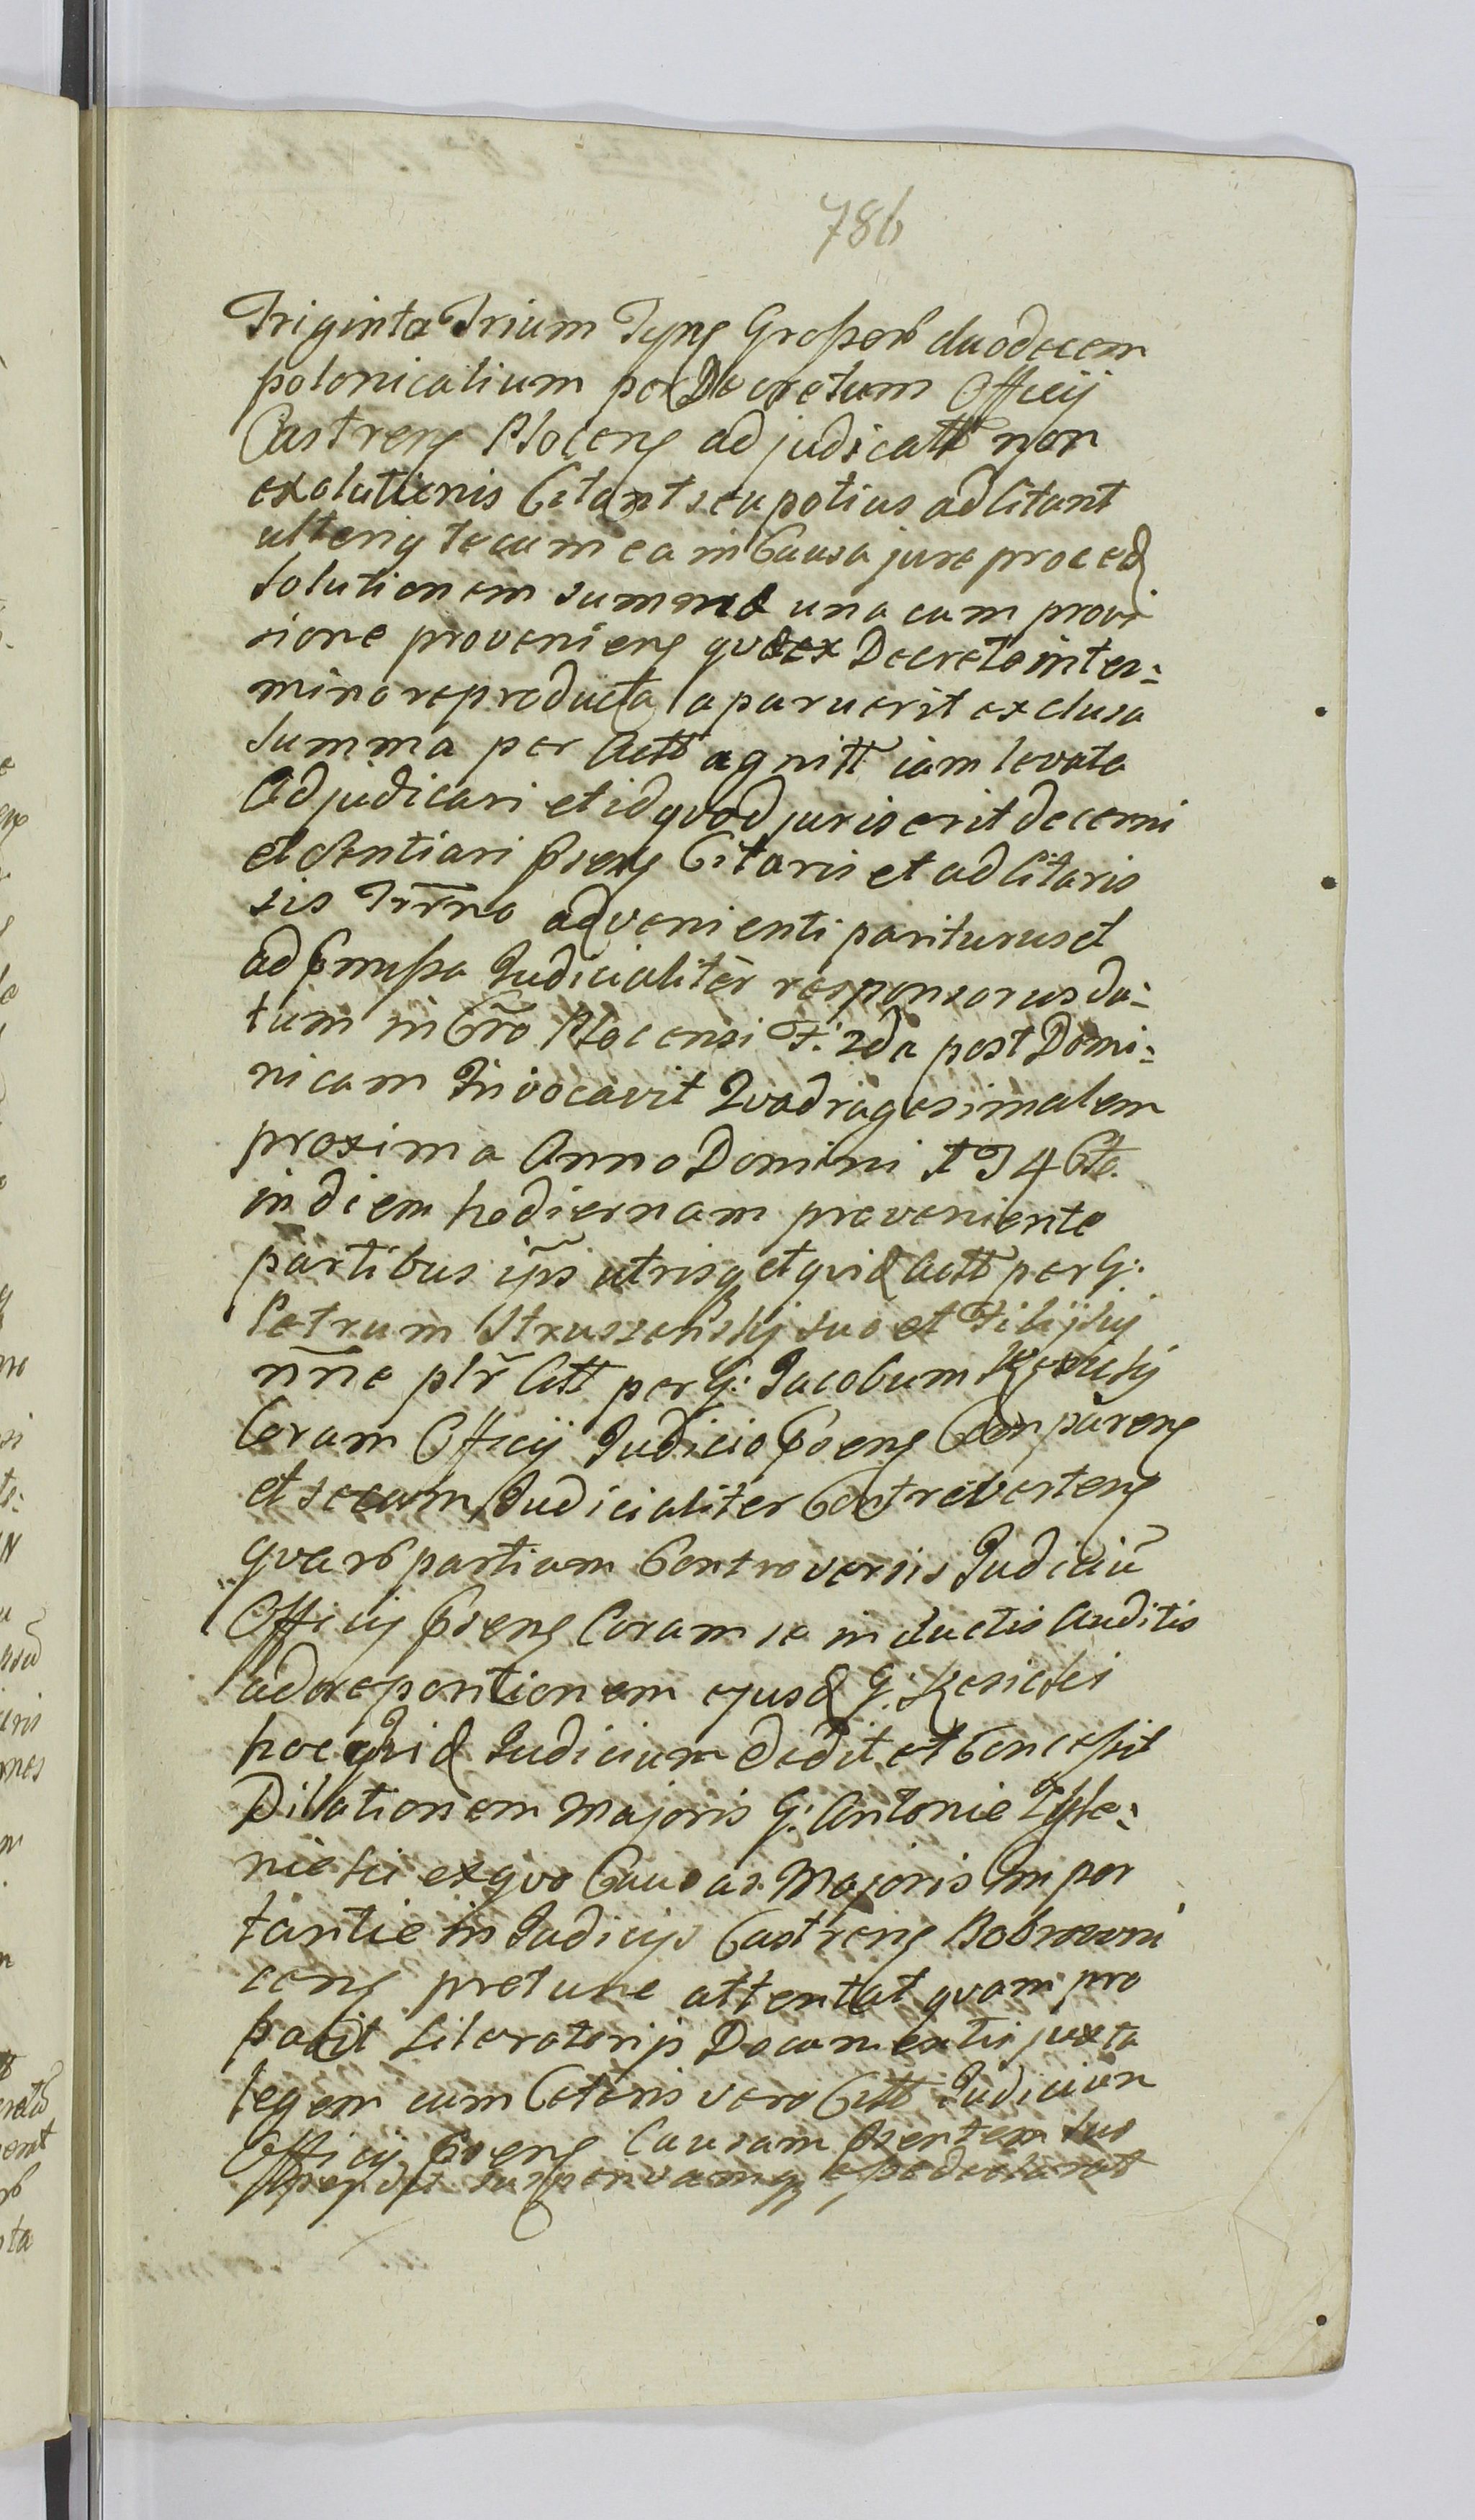 786
Triginta Trium Tynf Grossorũ duodecem
polonicalium per Decretum Officij
Castren Plocen adjudicatt non
exolutionis Citant seu potius adCitant
ulterig tecum ea in Causa jure proced
Solutionem summae una cum provi
sione provenien quae ex Decreto in ter:
mino reproducta aparuerit exclusa
Summa per Actt agnitt iam levata
Adjudicari et id quod juris erit decerni
et Sentiari psens Citaris et adCitaris
sis Trno advenienti pariturus et
ad pmissa Judicialiter responsorus da:
tum in Cro Plocensi F. 2da post Domi:
nicam Invocavit Quadragesimalem
proxima Anno Domini 174
in diem hodiernam proveniente
partibus ips utrisq et quid Actt per G:
Petrum Struszenskj suo et Filijskj
nne plr Citt per G: Jacobum
Coram Officij Judicio psens Comparens
et secum Judicialiter Contravertens
quarũ partium Controversiis Judiciũ
Officij psens Coram se inductis Auditis
ad expositionem ejusd G.
hoc quid Judicium dedit et Concessit
Dilationem Majoris G: Antonio Zgle:
nicki ex quo Causas Majoris Impor
tantie in Judicijs Castrens Bobrowni
cens pretunc attentat quam pro
babit Literatorijs Documentis juxta
legem cum Ceteris vero Citt Judicium
Officij psens Causam psentem sus